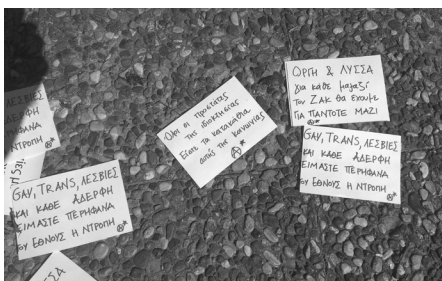 ΛΕΣΒΙΕΣ
ΑΔΕΡΦΗ
ΠΕΡΗΦΑΝΑ
Η ΝΤΡΟΠΗ
GAY, TRANS, ΛΕΣΒΙΕΣ
ΚΑΙ ΚΑΘΕ ΑΔΕΡΦΗ
ΕΙΜΑΣΤΕ ΠΕΡΗΦΑΝΑ
ΤΟΥ ΕΘΝΟΥΣ Η ΝΤΡΟΠΗ
Όλοι οι προστάτες
της ιδιοκτησίας
Είστε τα κατακάθια
αυτής της κοινωνίας
ΟΡΓΗ & ΛΥΣΣΑ
για κάθε μαγαζί
Τον ΖΑΚ θα έχουμε
ΓΙΑ ΠΑΝΤΟΤΕ ΜΑΖΙ
GAY, TRANS, ΛΕΣΒΙΕΣ
ΚΑΙ ΚΑΘΕ ΑΔΕΡΦΗ
ΕΙΜΑΣΤΕ ΠΕΡΗΦΑΝΑ
ΤΟΥ ΕΘΝΟΥΣ Η ΝΤΡΟΠΗ